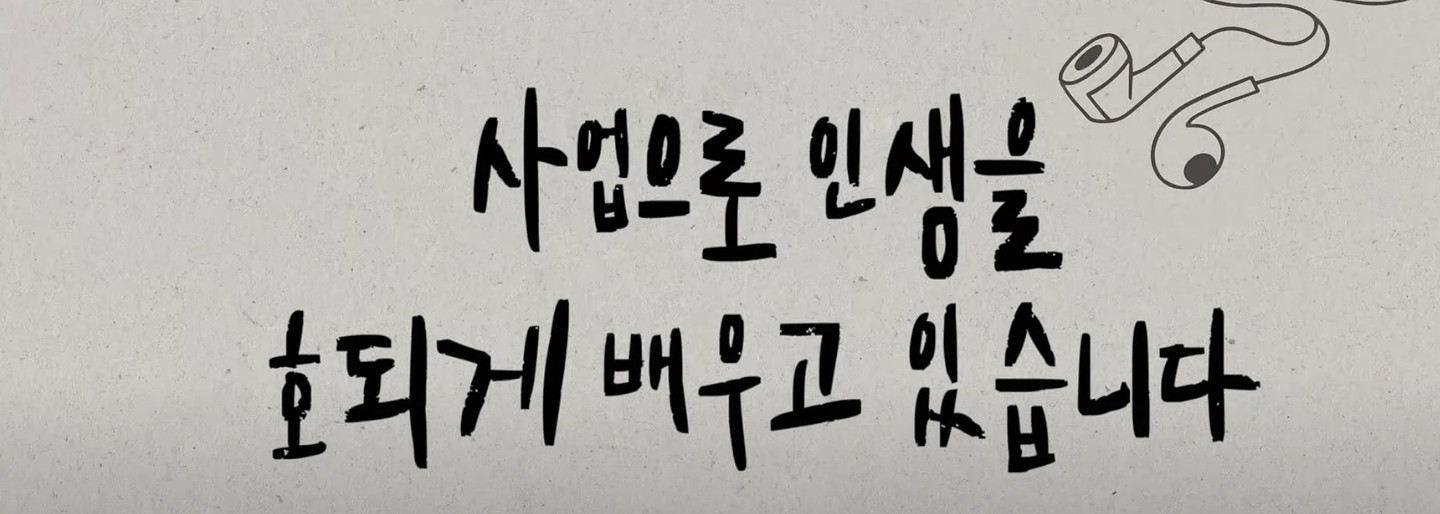 사업으로 인생을
호되게 배우고 있습니다